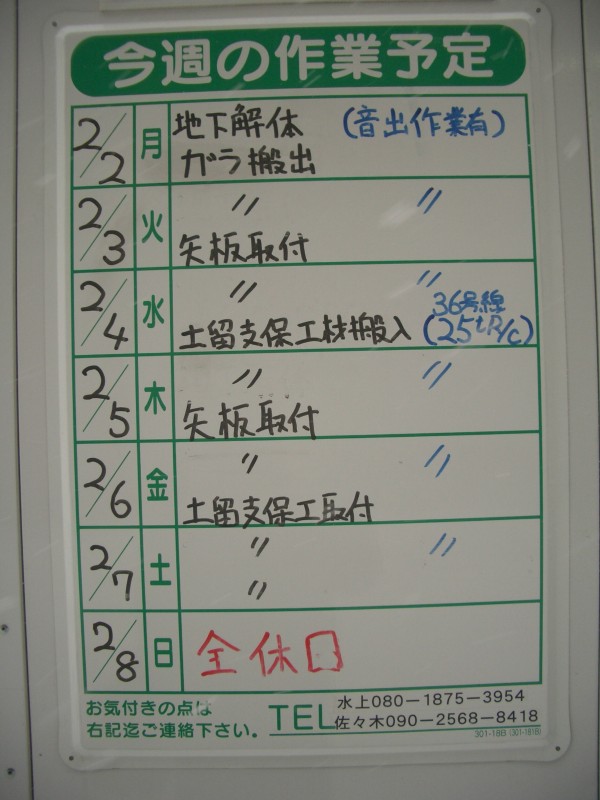 今週の作業予定
2/2 月 地下解体 (音出作業有)
ガラ搬出
2/3 火 〃 〃
矢板取付
2/4 水 〃 〃
土留支保工材搬入 36号線
(25tR/c)
2/5 木 〃 〃
矢板取付
2/6 金 〃 〃
土留支保工取付
2/7 土 〃 〃
〃
2/8 日 全休日
お気付きの点は
右記迄ご連絡下さい。
TEL 水上080-1875-3954
佐々木090-2568-8418
301-18B (301-181B)